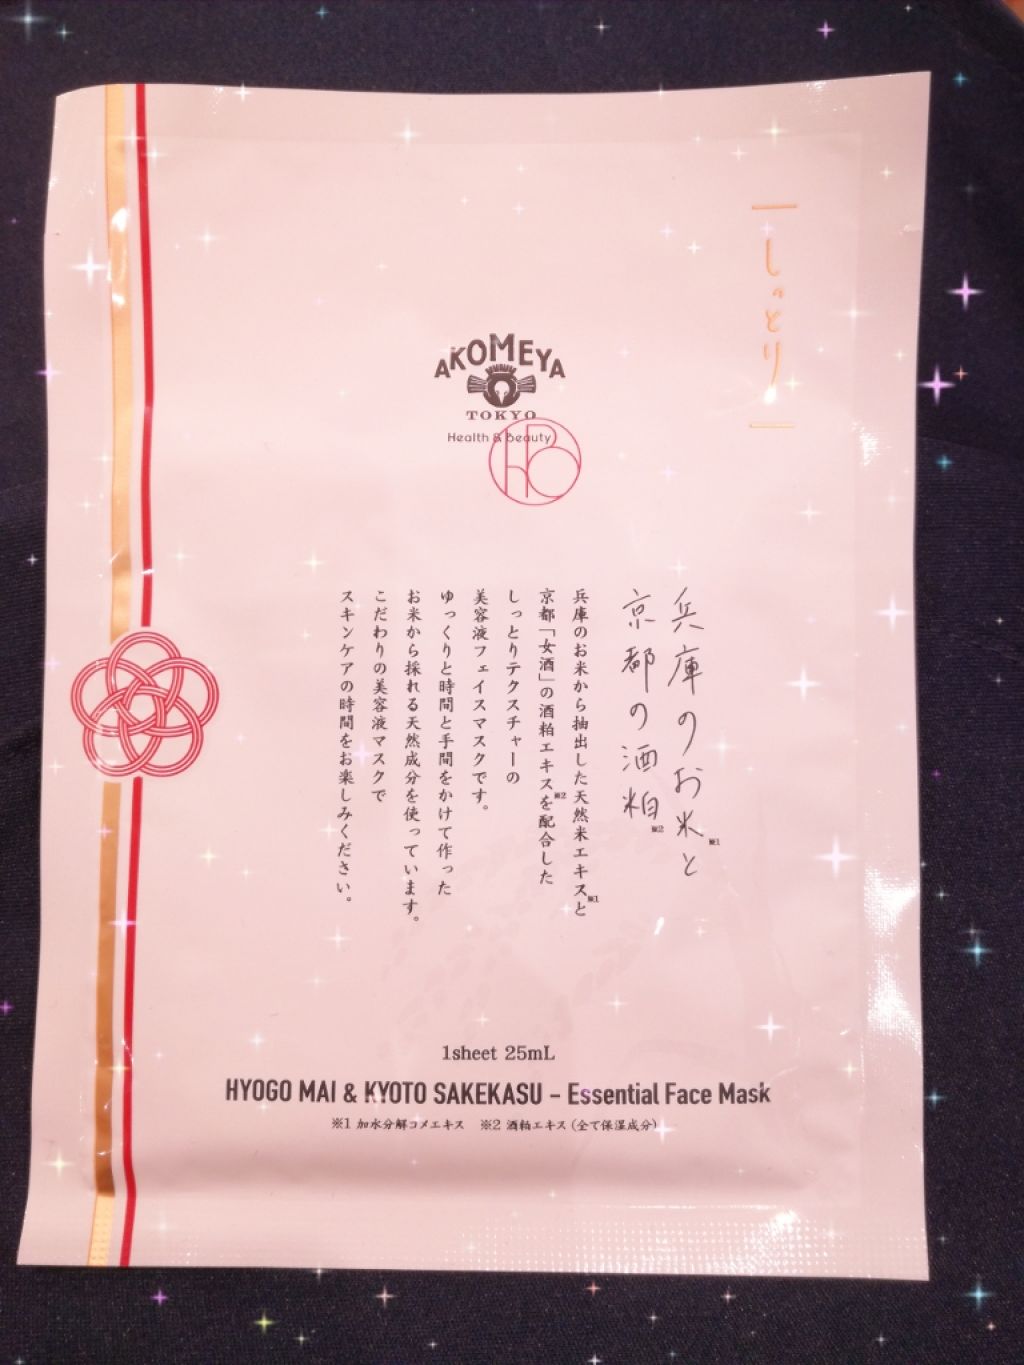 しっとり
AKOMEYA
TOKYO
Health & Beauty
兵庫のお米※1と
京都の酒粕※2
兵庫のお米から抽出した天然米エキス※1と
京都「女酒」の酒粕エキス※2を配合した
しっとりテクスチャーの
美容液フェイスマスクです。
ゆっくりと時間と手間をかけて作った
お米から採れる天然成分を使っています。
こだわりの美容液マスクで
スキンケアの時間をお楽しみください。
1sheet 25mL
HYOGO MAI & KYOTO SAKEKASU – Essential Face Mask
※1 加水分解コメエキス ※2 酒粕エキス（全て保湿成分）